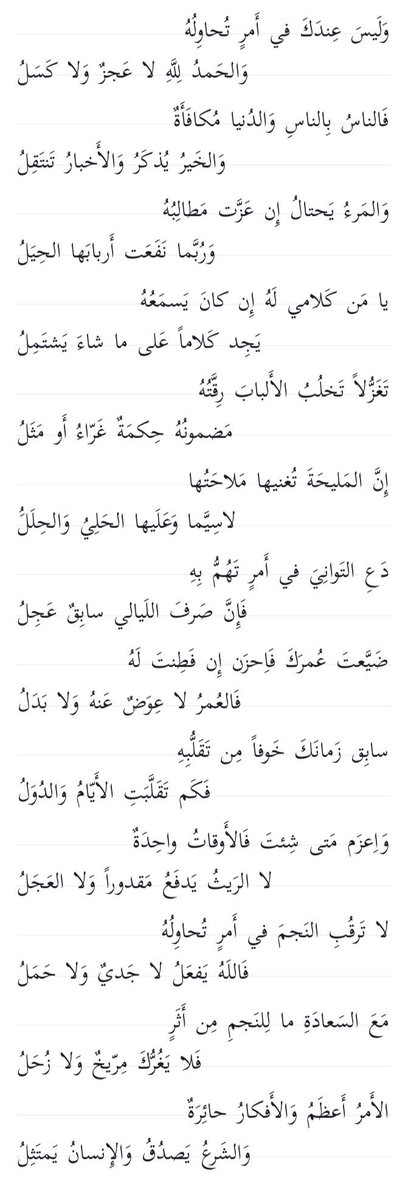 وَلَيسَ عِندَكَ في أَمرٍ تُحاوِلُهُ
وَالحَمدُ لِلَّهِ لا عَجزٌ وَلا كَسَلُ
فَالناسُ بِالناسِ وَالدُنيا مُكافَأَةٌ
وَالخَيرُ يُذكَرُ وَالأَخبارُ تَنتَقِلُ
وَالمَرءُ يَحتالُ إِن عَزَّت مَطالِبُهُ
وَرُبَّما نَفَعَت أَربابَها الحِيَلُ
يا مَن كَلامي لَهُ إِن كانَ يَسمَعُهُ
يَجِد كَلاماً عَلى ما شاءَ يَشتَمِلُ
تَغَزُّلاً تَخلُبُ الأَلبابَ رِقَّتُهُ
مَضمونُهُ حِكمَةٌ غَرّاءُ أَو مَثَلُ
إِنَّ المَليحَةَ تُغنيها مَلاحَتُها
لاسِيَّما وَعَلَيها الحَليُ وَالحِلَلُ
دَعِ التَوانِيَ في أَمرٍ تَهُمُّ بِهِ
فَإِنَّ صَرفَ اللَيالي سابِقٌ عَجِلُ
ضَيَّعتَ عُمرَكَ فَاِحزَن إِن فَطِنتَ لَهُ
فَالعُمرُ لا عِوَضٌ عَنهُ وَلا بَدَلُ
سابِق زَمانَكَ خَوفاً مِن تَقَلُّبِهِ
فَكَم تَقَلَّبَتِ الأَيّامُ وَالدُوَلُ
وَاِعزَم مَتى شِئتَ فَالأَوقاتُ واحِدَةٌ
لا الرَيثُ يَدفَعُ مَقدوراً وَلا العَجَلُ
لا تَرقُبِ النَجمَ في أَمرٍ تُحاوِلُهُ
فَاللَهُ يَفعَلُ لا جَديٌ وَلا حَمَلُ
مَعَ السَعادَةِ ما لِلنَجمِ مِن أَثَرٍ
فَلا يَغُرُّكَ مِرّيخٌ وَلا زُحَلُ
الأَمرُ أَعظَمُ وَالأَفكارُ حائِرَةٌ
وَالشَرعُ يَصدُقُ وَالإِنسانُ يَمتَثِلُ